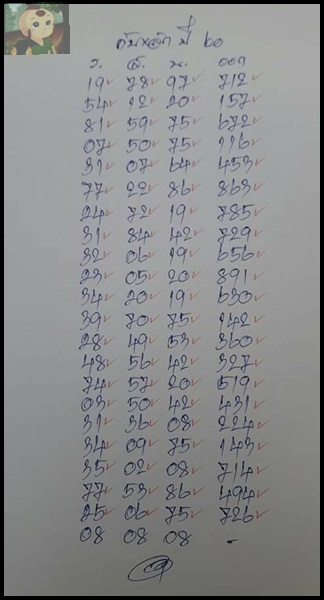 ว. ส. น. ออก
19 78 97 712
54 12 20 157
81 59 75 672
07 50 75 116
31 07 64 453
77 22 86 863
24 72 19 785
31 84 42 729
32 06 19 656
23 05 20 891
34 20 19 630
39 70 75 142
28 49 53 360
48 56 42 327
74 57 20 519
03 50 42 431
31 36 08 224
34 09 75 143
35 02 08 714
77 53 86 494
25 06 75 726
08 08 08 -